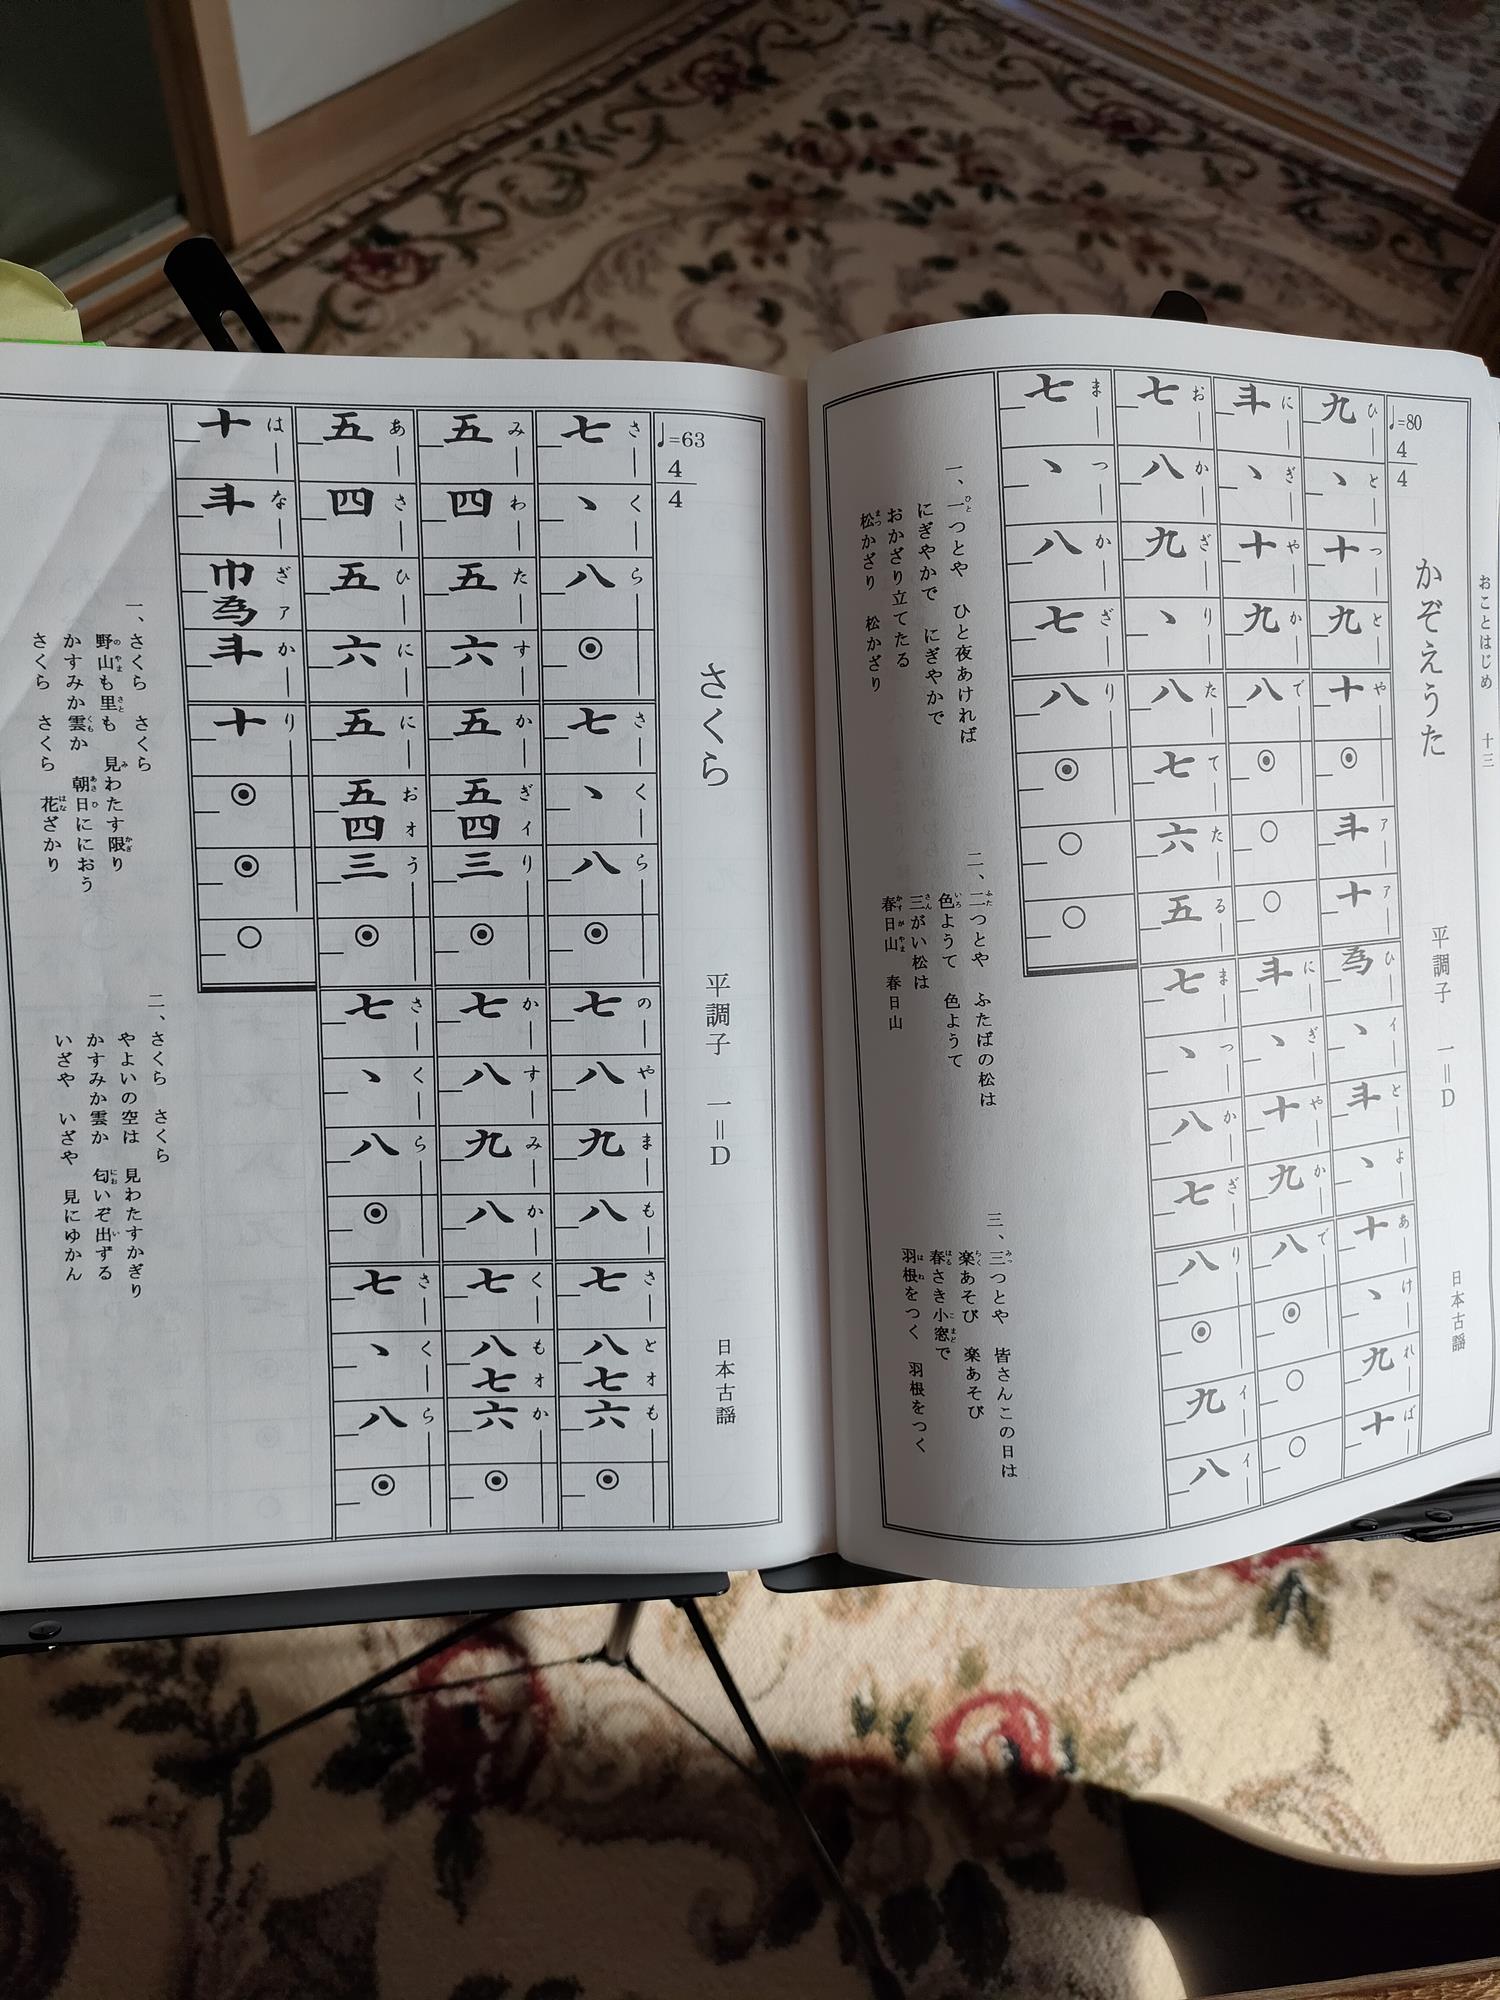 おことはじめ　十三
かぞえうた　平調子　一=D　日本古謡
♩=80
4
4
ひとつとやアアひイとよあければ
九、十九十◉斗十為、斗、十、九十
にぎやかでにぎやかで
斗、十九八◉○○斗、十九八◉○○
おかざりたてたるまつかざりイイ
七八九、八七六五七、八七八◉九八
まつかざり
七、八七八◉○○
一、一つとや　ひと夜あければ
にぎやかで　にぎやかで
おかざり立てたる
松かざり　松かざり
二、二つとや　ふたばの松は
色ようて　色ようて
三がい松は
春日山　春日山
三、三つとや　皆さんこの日は
楽あそび　楽あそび
春さき小窓で
羽根をつく　羽根をつく
さくら　平調子　一=D　日本古謡
♩=63
4
4
さくらさくらのやまもさとオも
七、八◉七、八◉七八九八七八七六◉
みわたすかぎイりかすみかくもオか
五四五六五五四三◉七八九八七八七六◉
あさひににおオうさくらさくら
五四五六五五四三◉七、八◉七、八◉
はなざアかり
十斗巾為斗十◉◉○
一、さくら　さくら
野山も里も　見わたす限り
かすみか雲か　朝日ににおう
さくら　さくら　花ざかり
二、さくら　さくら
やよいの空は　見わたすかぎり
かすみか雲か　匂いぞ出ずる
いざや　いざや　見にゆかん